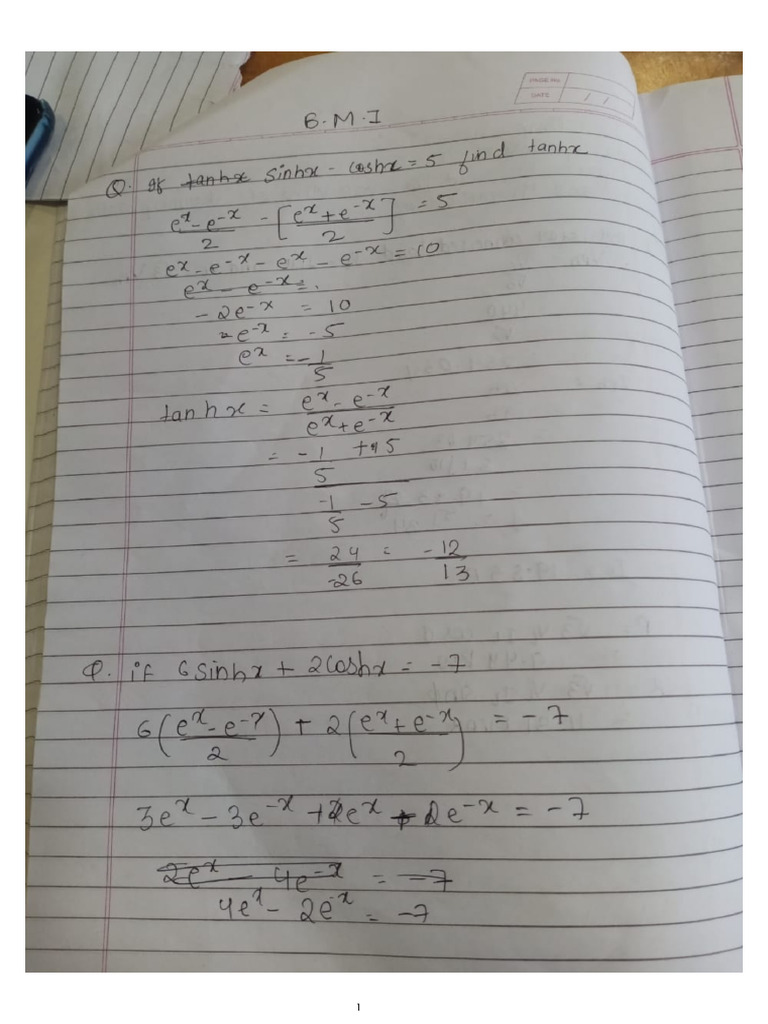 PAGE NO.
DATE / /
B.M.I
Q. If tanhx sinhx - coshx = 5 find tanhx
e^x - e^-x / 2 - [e^x + e^-x / 2] = 5
e^x - e^-x - e^x - e^-x = 10
e^x - e^-x = .
- 2e^-x = 10
e^-x = -5
e^x = -1/5
tanhx = e^x - e^-x / e^x + e^-x
= -1/5 + 5 / -1/5 - 5
= 24/-26 = -12/13
Q. if 6sinhx + 2coshx = -7
6(e^x - e^-x / 2) + 2(e^x + e^-x / 2) = -7
3e^x - 3e^-x + e^x + e^-x = -7
2e^x - 4e^-x = -7
4e^x - 2e^-x = -7
1